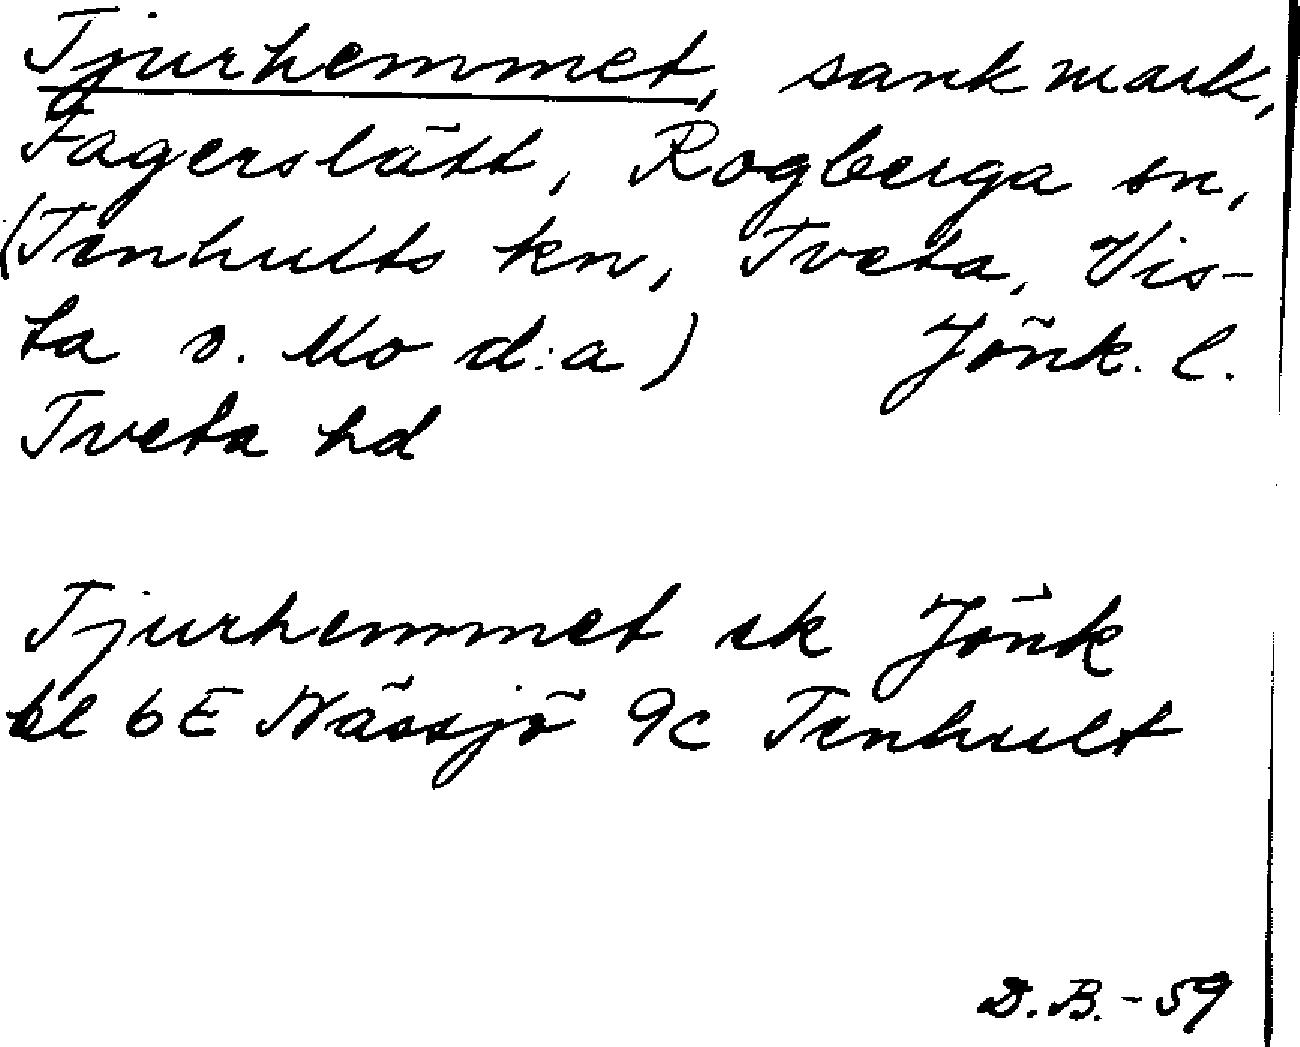 Tjurhemmet, sankmark,
Fagerslätt, Rogberga sn,
(Tenhults kn, Tveta, Vis-
ta o. Mo d:a) Jönk. l.
Tveta hd
Tjurhemmet ek Jönk
bl 6E Nässjö 9c Tenhult
D.B.-59